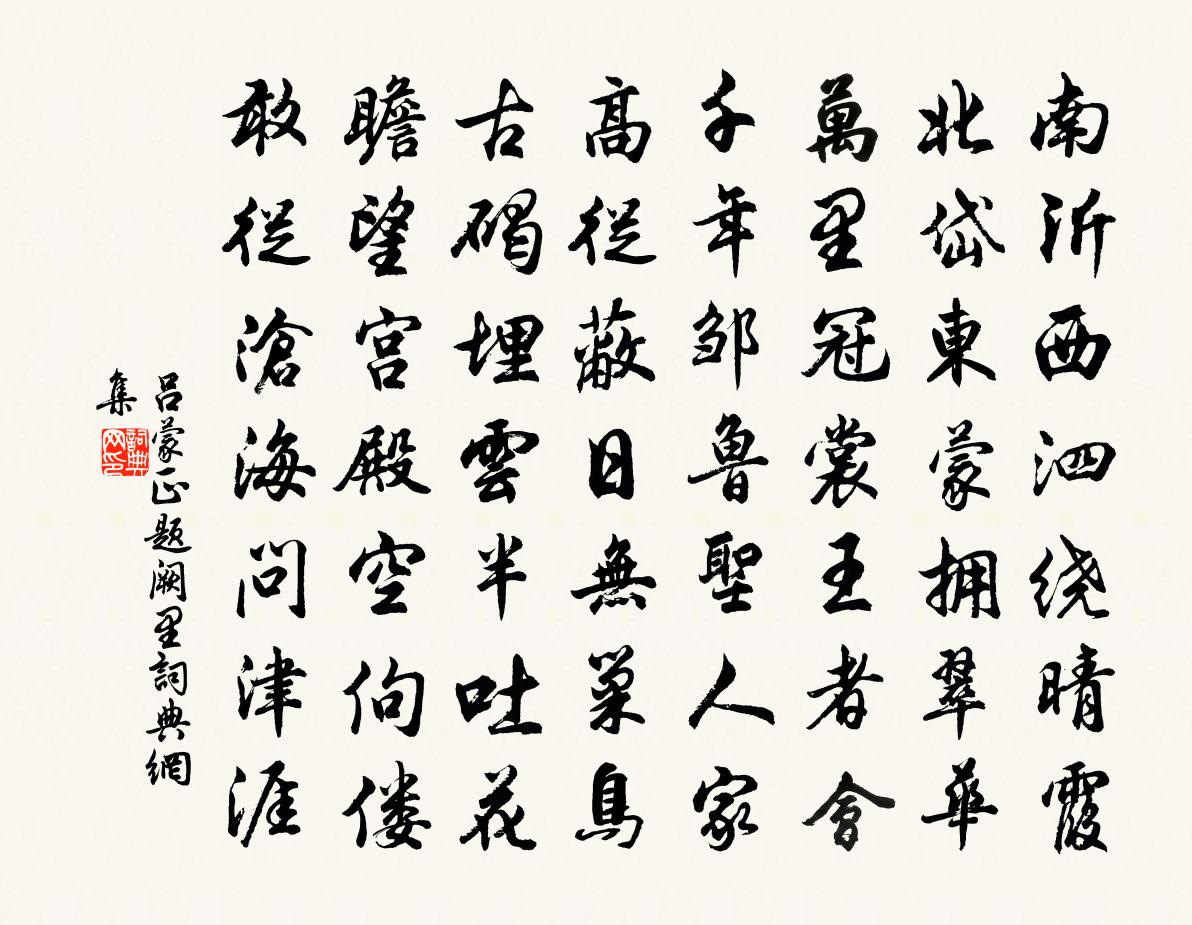 南沂西泗绕晴霞
北岱東蒙拥翠華
萬里冠裳王者會
千年邹魯聖人家
高從蔽日無巢鳥
古碣埋雲半吐花
瞻望宫殿空佝偻
敢從滄海問津涯
吕蒙正题阙里詞典網
集
詞典
网印